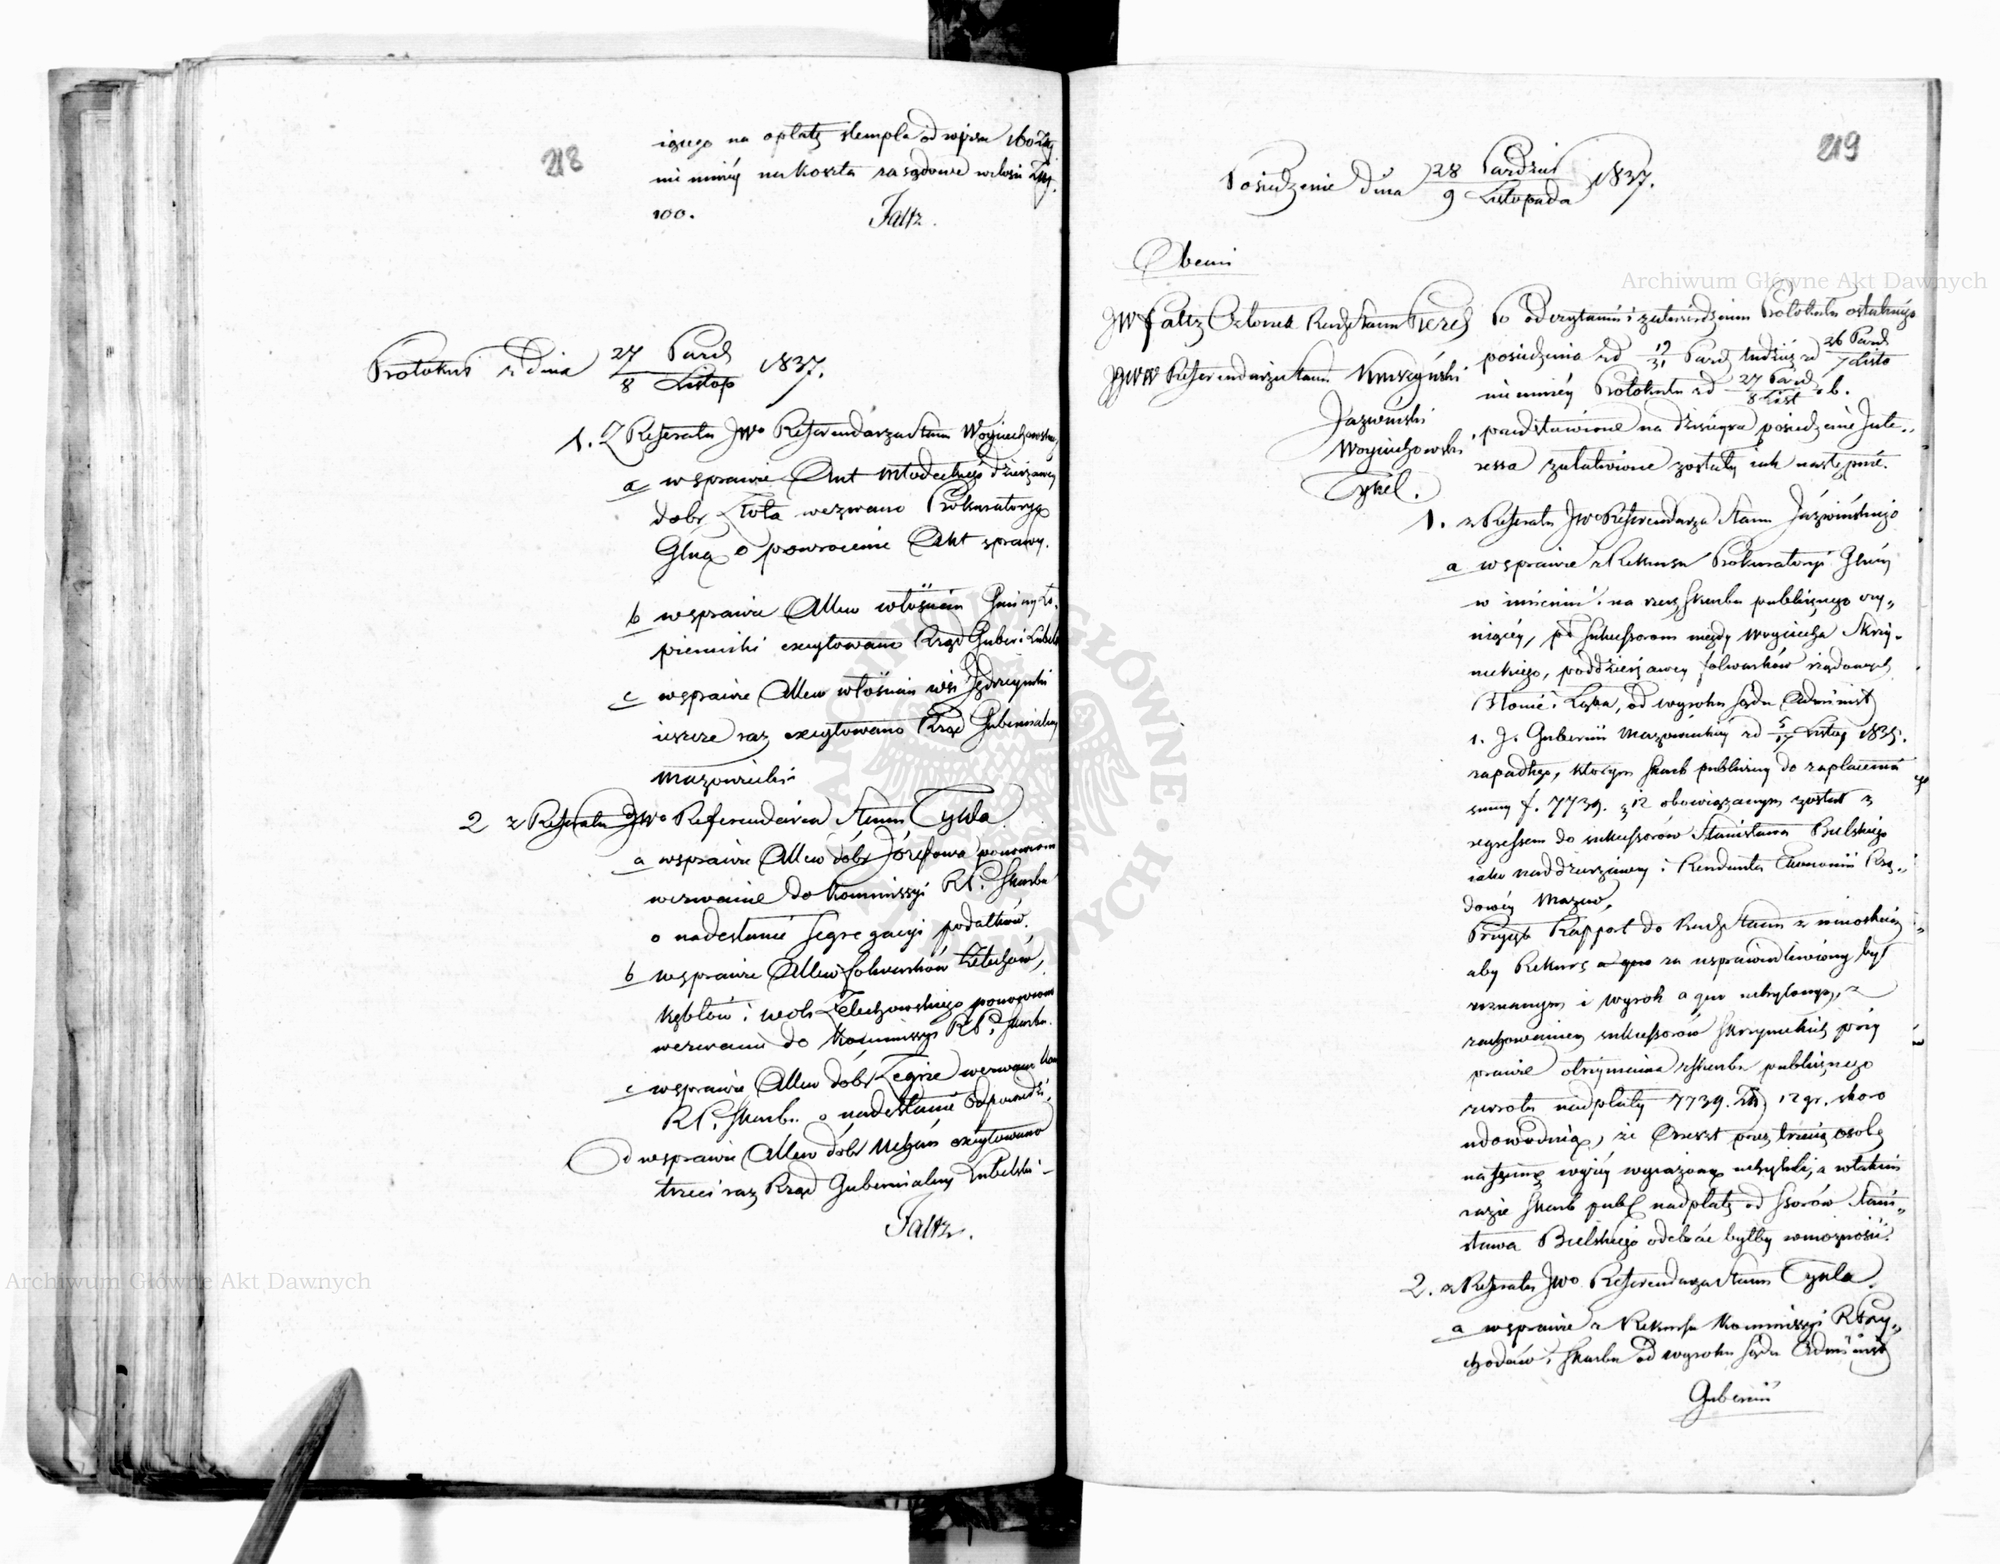 218
iącego na opłatę stempla od wpisu 160 Złp
niemniéy na koszta zasądowe w ilości Złp.
100.
Faltz.
Protokuł z dnia 27 Paźd / 8 Listop 1837.
1. Z Referatu JWo Referendarza Stanu Woyciechowskiego
a w sprawie Ant Młodeckiego dzierżawcy
dobr Złota wezwano Prokuratoryą
Glną o powrócenie Akt sprawy.
b w sprawie Allew włościan Gminy
excytowano Rząd Guberi Lubels
c w sprawie Allew włościan wsi
ieszcze raz excytowano Rząd Gubernialny
Mazowiecki
2 z Referatu JWo Referendarza Stanu Tykla
a w sprawie Allew dóbr Józefowa ponowiono
wezwanie do Kommissyi RP. Skarbu
o nadesłanie segregacyi podatków.
b w sprawie Allew folwarków Żelechów,
Kębłów i Woli Żelechowskiego ponowiono
wezwanie do Kommissyi RP. Skarbu.
c w sprawie Allew dóbr Zegrze wezwano Kom
RP. Skarbu o nadesłanie odpowiedzi,
d w sprawie Allew dóbr excytowano
trzeci raz Rząd Gubernialny Lubelski
Faltz.
219
Posiedzenie dnia 28 Paździer / 9 Listopada 1837.
Obecni
JW Faltz Członek Rady Stanu Prezes
JWW Referendarze Stanu
Jaźwiński
Woyciechowski
Tykel.
Po odczytaniu i zatwierdzeniu Protokułu ostatniego
posiedzenia z d 19/31 Paźd tudzież z d 26 Paźd / 7 Listo
niemniéy Protokułu z d 27 Paźd / 8 List r. b.
przedstawione na dzisieysze posiedzenie Inte-
ressa załatwione zostały iak następnie.
1. z Referatu JWo Referendarza Stanu Jaźwińskiego
a w sprawie z Rekursu Prokuratoryi Glnéy
w imieniu i na rzecz Skarbu publicznego czy-
niącéy, pko Sukcessorom niegdy Woyciecha Skrzy-
neckiego, poddzierżawcy folwarków rządowych
Słonie i Łąka, od wyroku Sądu Administ
1. J. Gubernii Mazowieckiéy z d 5/17 Listop 1835.
zapadłego, którym Skarb publiczny do zapłacenia
summy f. 7739. g 12 obowiązanym został z
regressem do sukcessorów Stanisława Bielskiego
iako naddzierżawcy i Rendanta Ekonomii Rzą-
dowéy Mazow,
Przyięto Rapport do Rady Stanu z wnioskiem
aby Rekurs a quo za usprawiedliwiony był
uznanym i wyrok a quo uchylonym, z
zachowaniem sukcessorów Skrzyneckich przy
prawie otrzymania z Skarbu publicznego
zwrotu nadpłaty 7739. Złp 12 gr. skoro
udowodnią, że Areszt przez trzecią osobę
na summę wyżéy wyrażoną uchylili, a w takim
razie Skarb publ nadpłatę od Ssorów Stani-
sława Bielskiego odebrać byłby w możności.
2. z Referatu JWo Referendarza Stanu Tykla.
a w sprawie z Rekursu Kommissyi R Przy-
chodów i Skarbu od wyroku Sądu Administ
Gubernii
Archiwum Główne Akt Dawnych
Archiwum Główne Akt Dawnych
ARCHIWUM GŁÓWNE AKT DAWNYCH